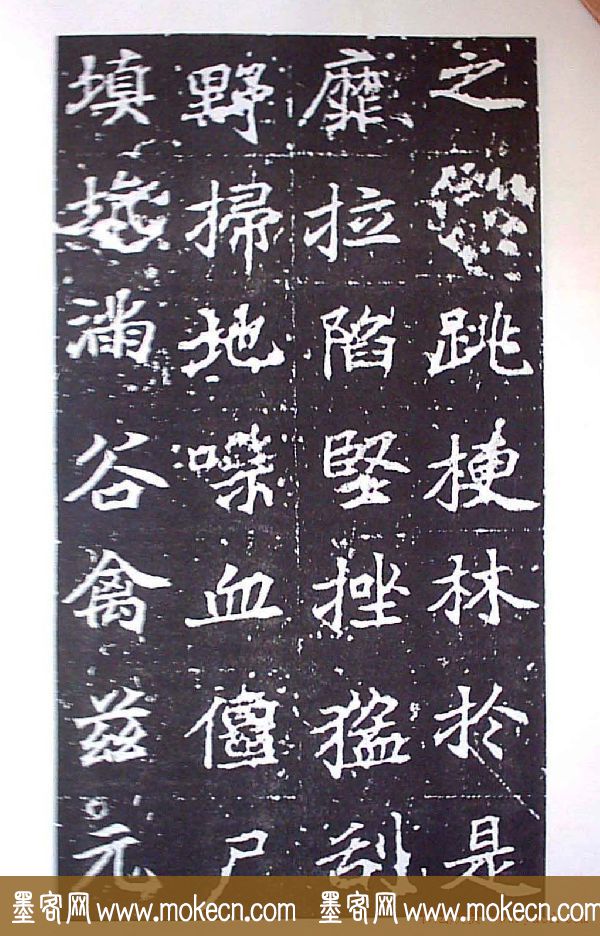 之跳梗林於是
靡拉陷堅挫猛刮
野掃地喋血僵尸
填滿谷禽兹元
墨客网 www.mokecn.com 墨客网 www.mokecn.com